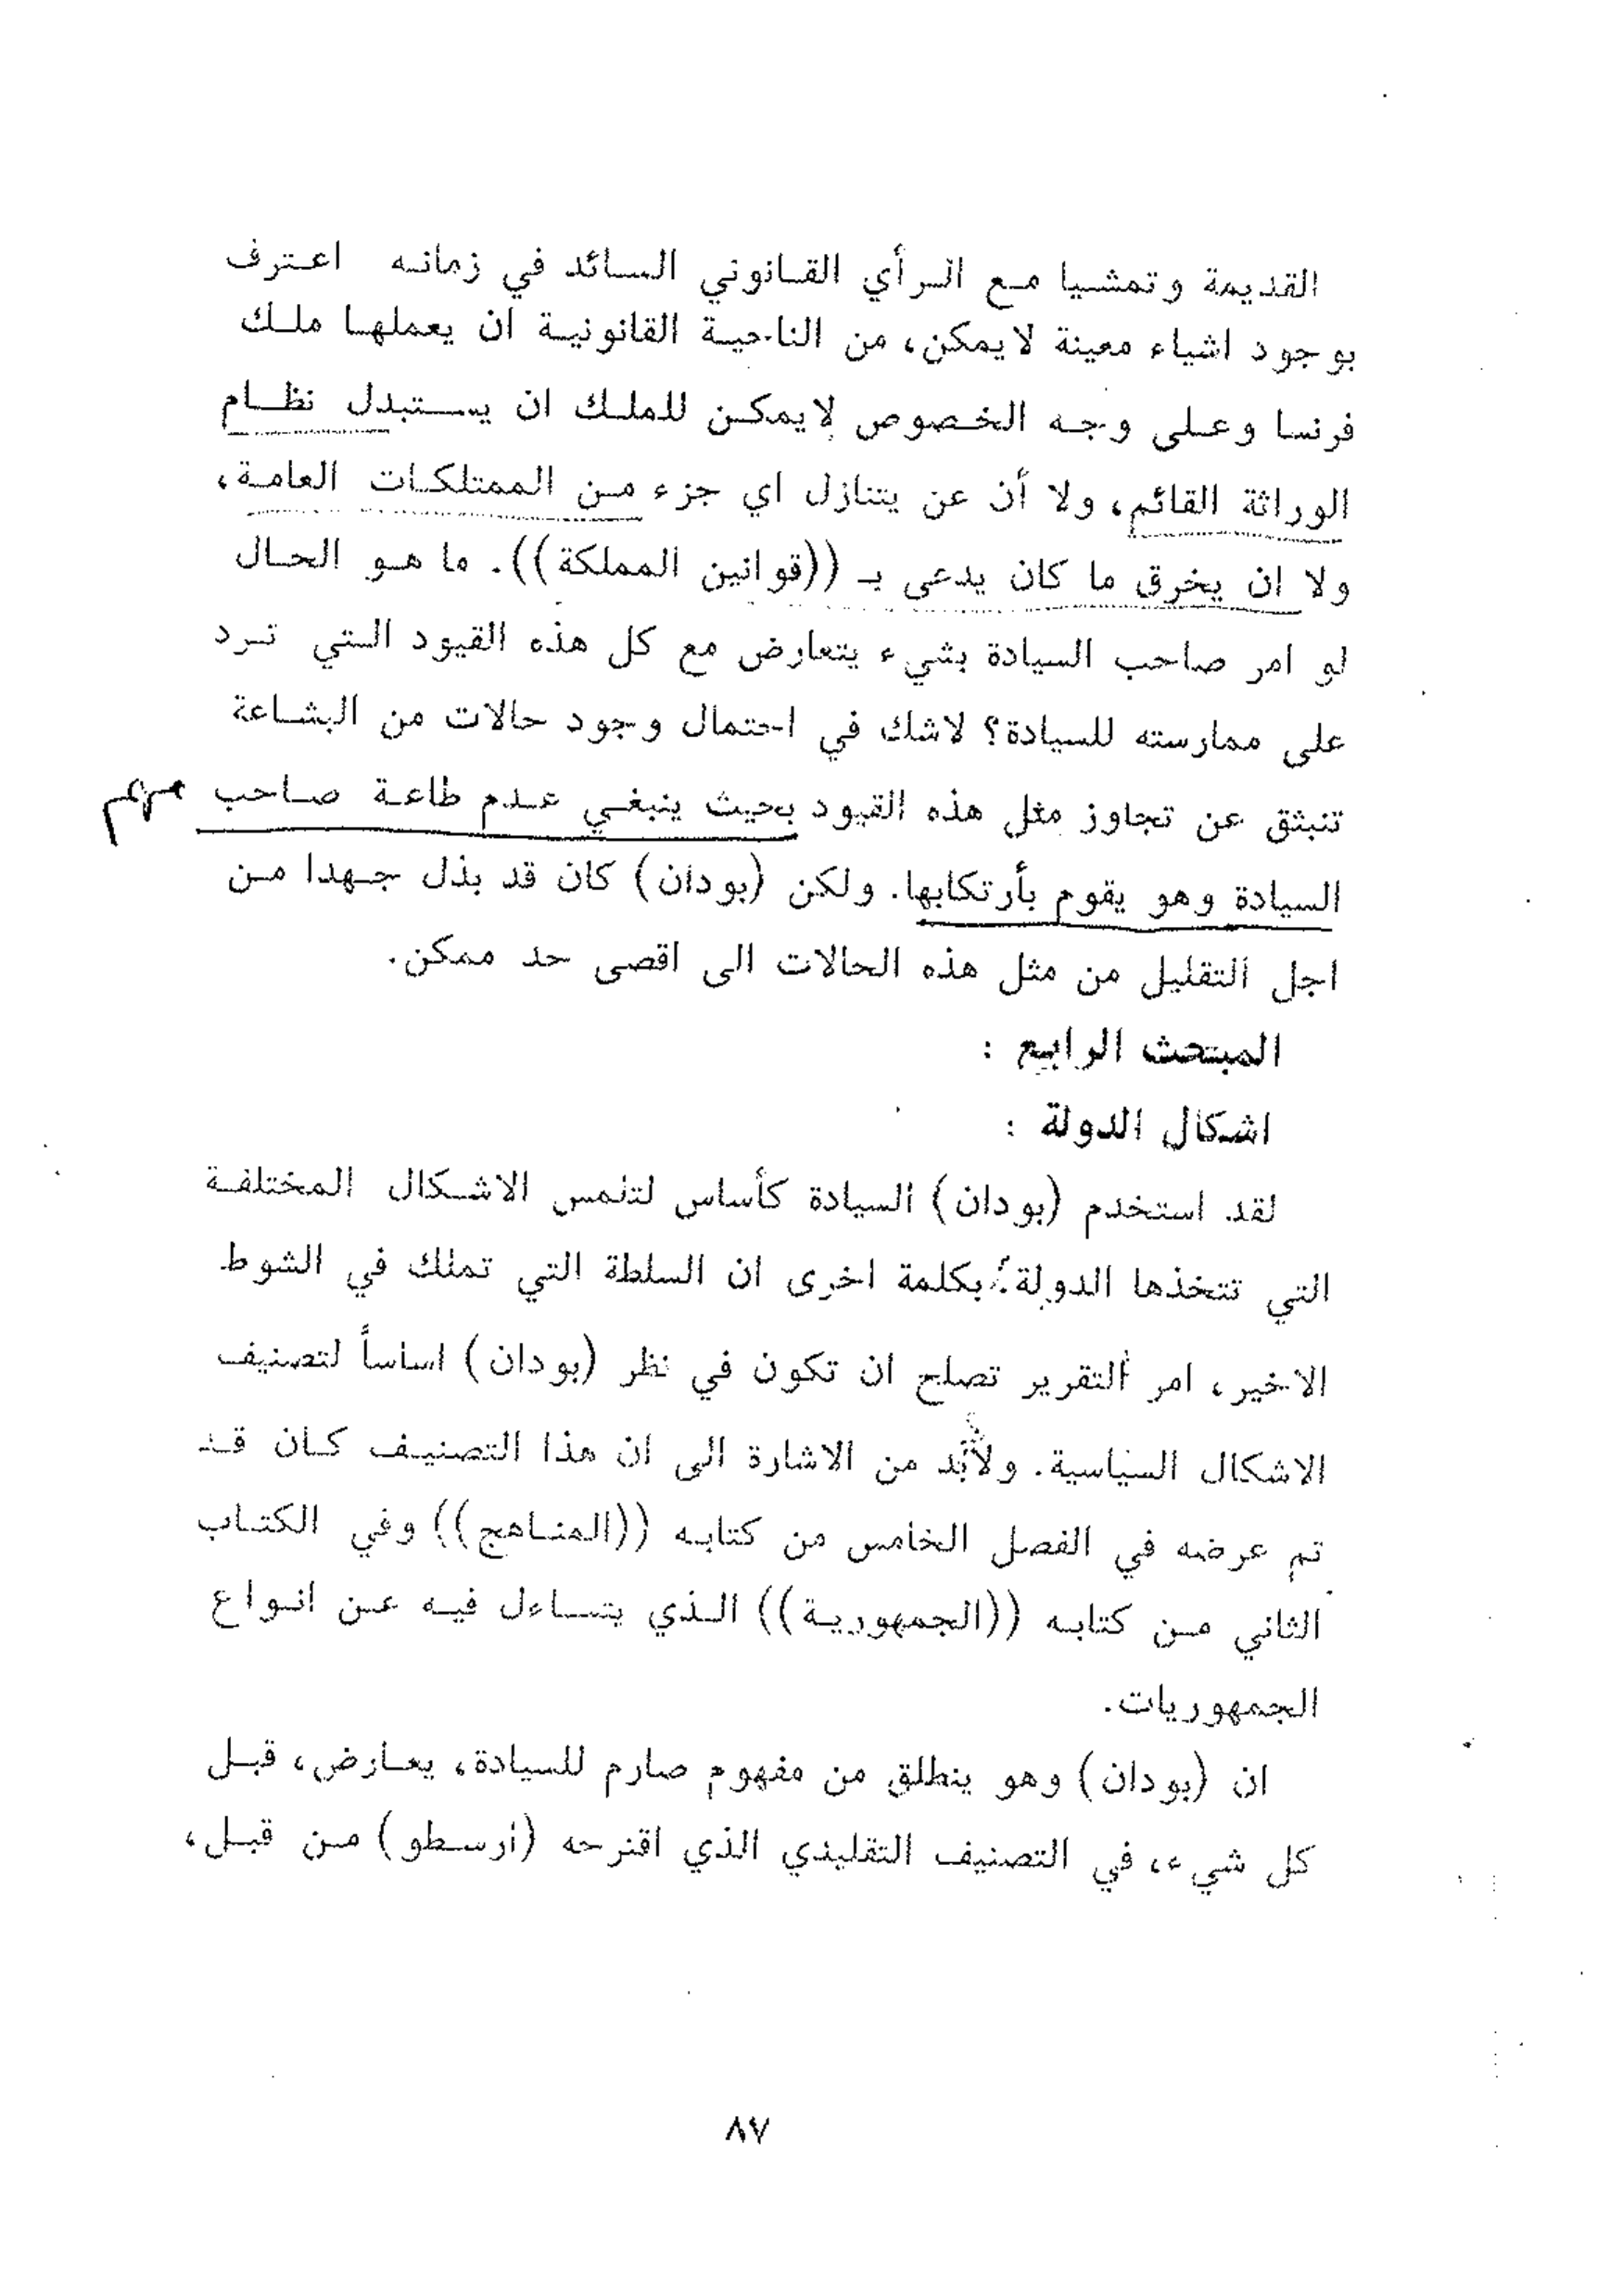 القديمة وتمشيا مع الرأي القانوني السائد في زمانه اعترف
بوجود اشياء معينة لايمكن، من الناحية القانونية ان يعملها ملك
فرنسا وعلى وجه الخصوص لايمكن للملك ان يستبدل نظام
الوراثة القائم، ولا أن عن يتنازل اي جزء من الممتلكات العامة،
ولا ان يخرق ما كان يدعى بـ ((قوانين المملكة)). ما هو الحال
لو امر صاحب السيادة بشيء يتعارض مع كل هذه القيود التي ترد
على ممارسته للسيادة؟ لاشك في احتمال وجود حالات من البشاعة
تنبثق عن تجاوز مثل هذه القيود بحيث ينبغي عدم طاعة صاحب مهم
السيادة وهو يقوم بأرتكابها. ولكن (بودان) كان قد بذل جهدا من
اجل التقليل من مثل هذه الحالات الى اقصى حد ممكن.
المبتحث الرابع :
اشكال الدولة :
لقد استخدم (بودان) السيادة كأساس لتلمس الاشكال المختلفة
التي تتخذها الدولة؛ بكلمة اخرى ان السلطة التي تملك في الشوط
الاخير، امر التقرير تصلح ان تكون في نظر (بودان) اساساً لتصنيف
الاشكال السياسية. ولابد من الاشارة الى ان هذا التصنيف كان قد
تم عرضه في الفصل الخامس من كتابه ((المناهج)) وفي الكتاب
الثاني من كتابه ((الجمهورية)) الذي يتساءل فيه عن انواع
الجمهوريات.
ان (بودان) وهو ينطلق من مفهوم صارم للسيادة، يعارض، قبل
كل شيء، في التصنيف التقليدي الذي اقترحه (أرسطو) من قبل،
٨٧